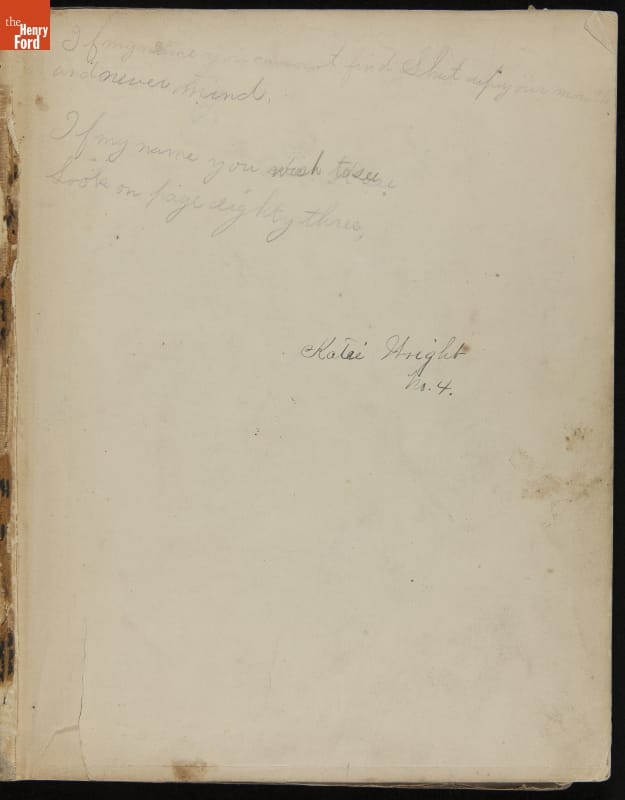 the
Henry
Ford
If my name you cannot find Shut up your mouth
and never mind.
If my name you wish to see
Look on page eighty three,
Katie Wright
No. 4.